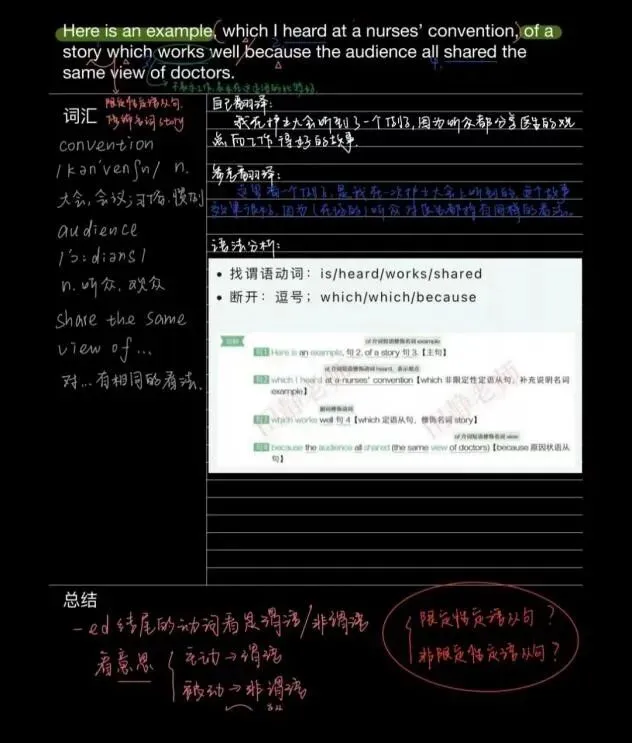 Here is an example, which I heard at a nurses' convention, of a
story which works well because the audience all shared the
same view of doctors.
限定性定语从句,
修饰名词 story
词汇
convention
/kən'venʃn/ n.
大会,会议;习俗,惯例
audience
/'ɔ:diəns/
n. 听众,观众
share the same
view of...
对...有相同的看法.
自己翻译:
我在护士大会听到了一个例子,因为听众都分享医生的观
点而工作得好的故事.
参考翻译:
这里有一个例子,是我在一次护士大会上听到的,这个故事
效果很好,因为(在场的)听众对医生都持有同样的看法。
语法分析:
• 找谓语动词:is/heard/works/shared
• 断开:逗号;which/which/because
of 介词短语修饰名词 example
句1 Here is an example, 句 2, of a story 句 3.【主句】
介词短语修饰动词 heard,表示地点
句2 which I heard at a nurses' convention【which 非限定性定语从句,补充说明名词
example】
副词修饰动词
句3 which works well 句 4【which 定语从句,修饰名词 story】
of 介词短语修饰名词 view
句4 because the audience all shared (the same view of doctors)【because 原因状语从
句】
总结
-ed 结尾的动词看是谓语/非谓语
看意思
主动→谓语
被动→非谓语
限定性定语从句?
非限定性定语从句?